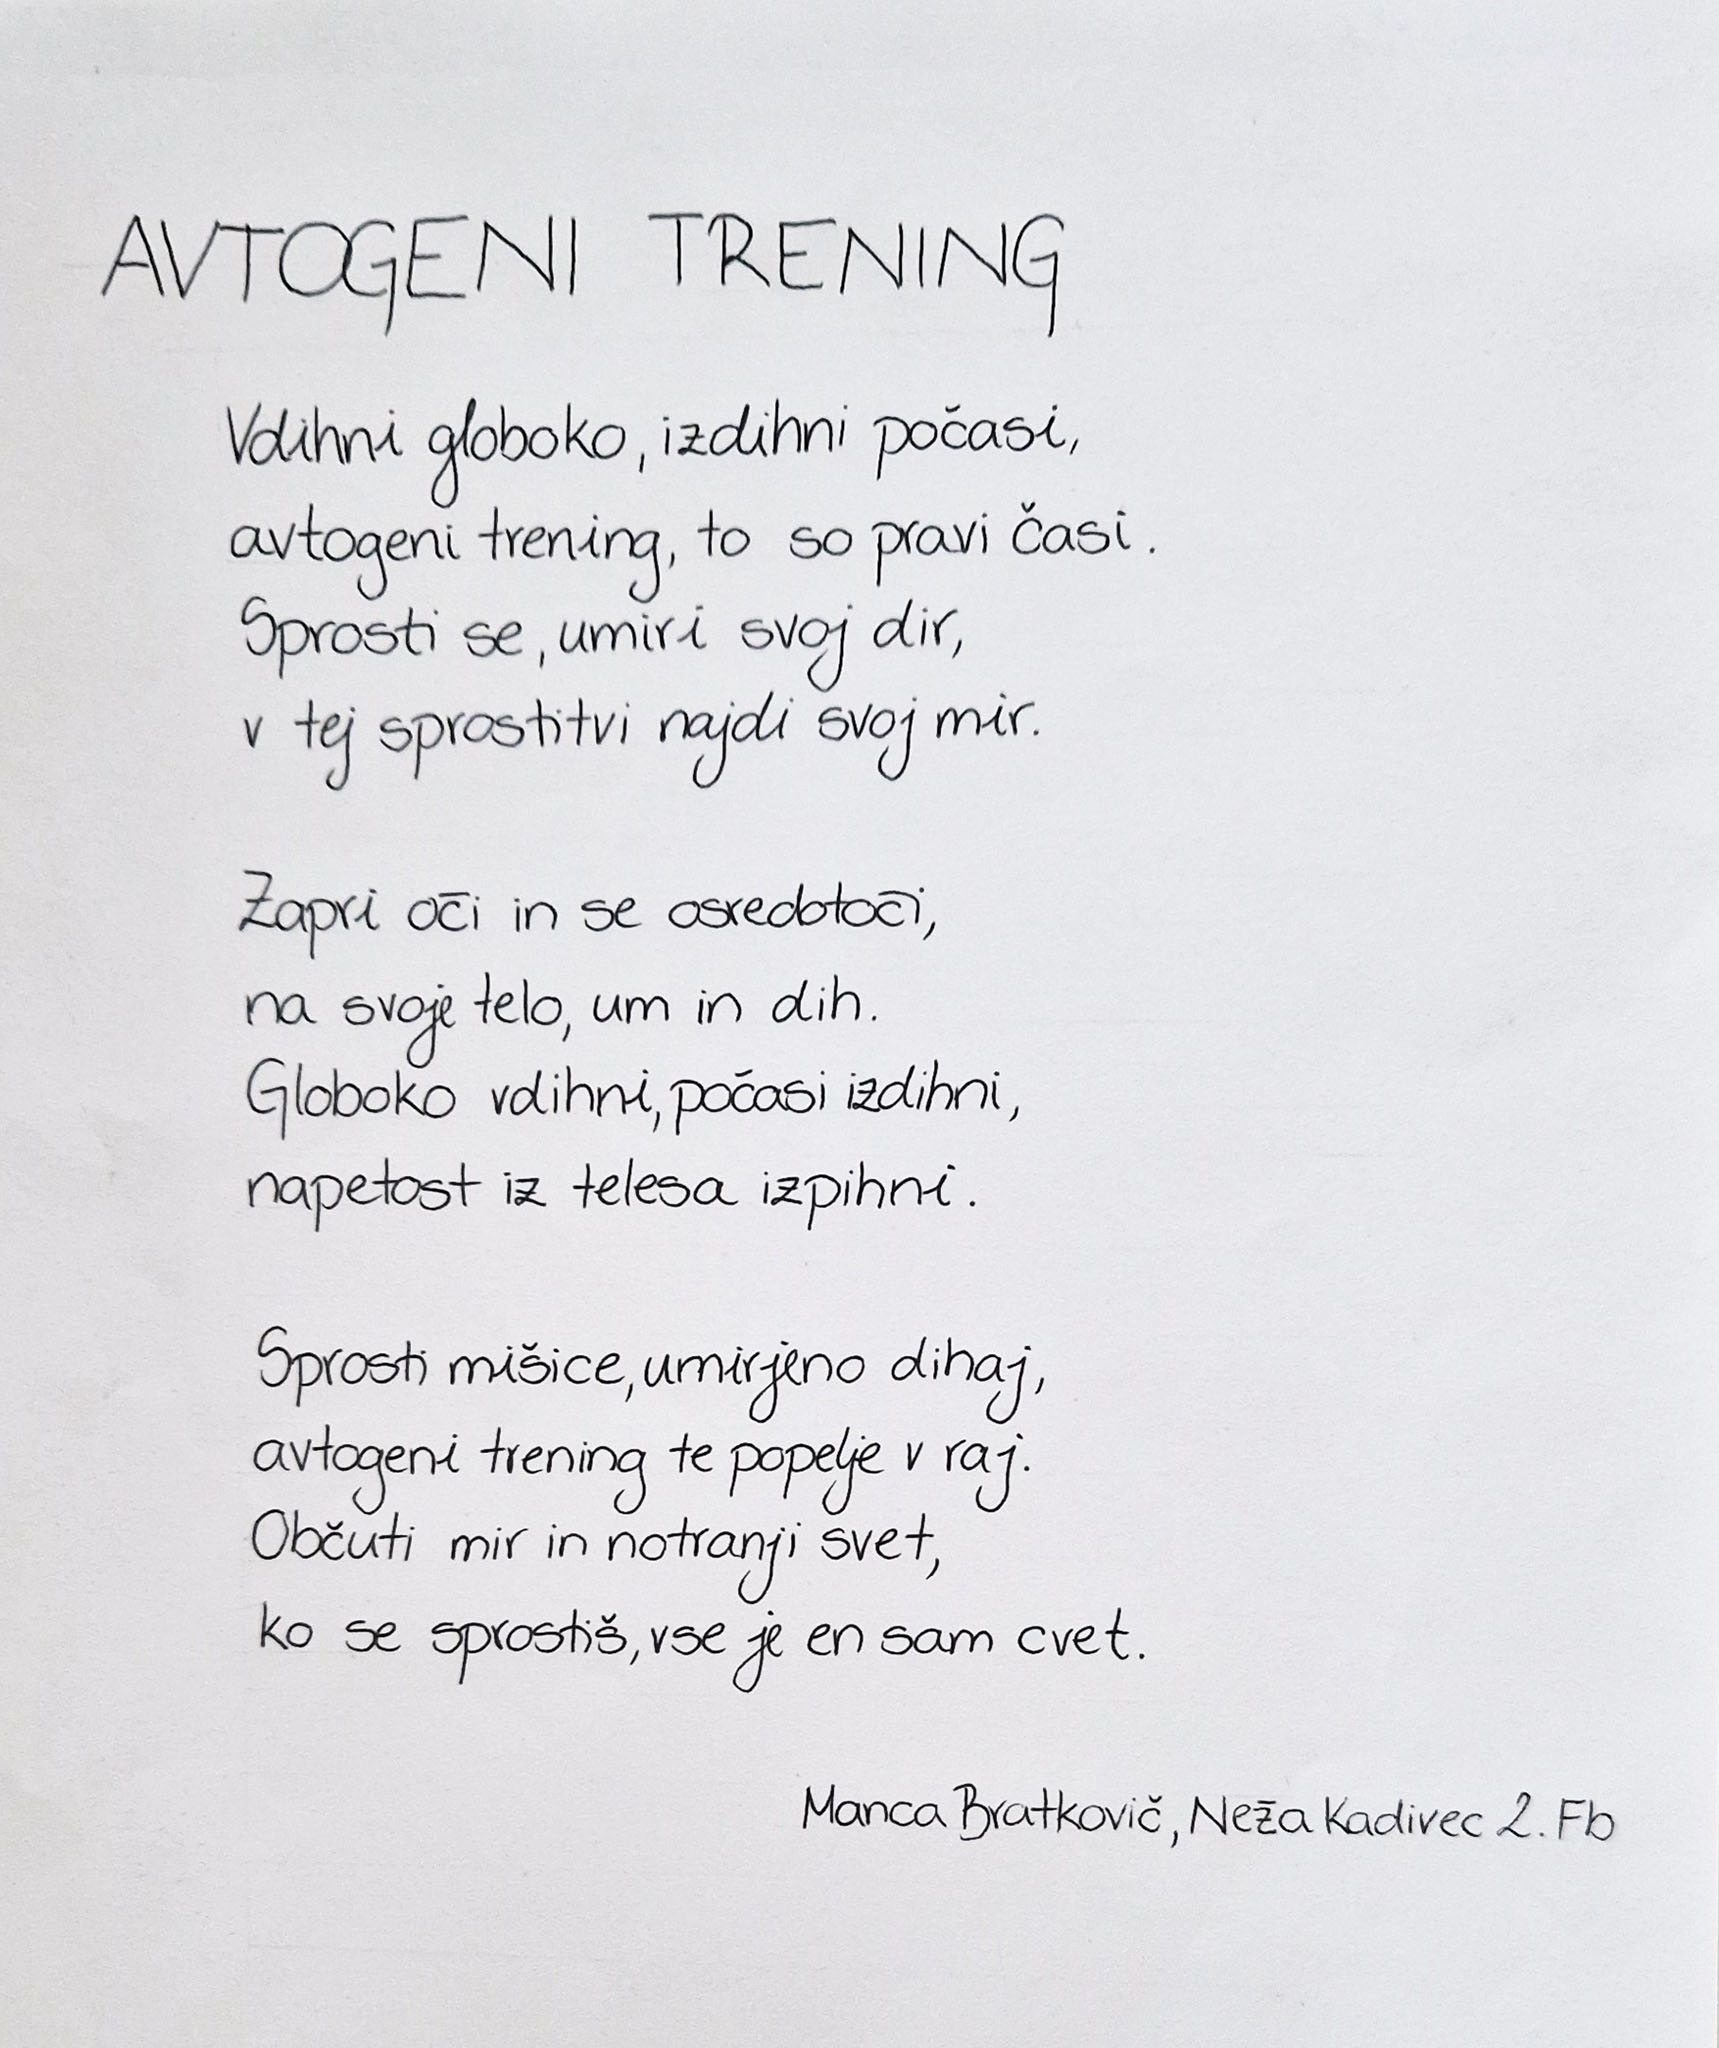 AVTOGENI TRENING
Vdihni globoko, izdihni počasi,
avtogeni trening, to so pravi časi.
Sprosti se, umiri svoj dir,
v tej sprostitvi najdi svoj mir.
Zapri oči in se osredotoči,
na svoje telo, um in dih.
Globoko vdihni, počasi izdihni,
napetost iz telesa izpihni.
Sprosti mišice, umirjeno dihaj,
avtogeni trening te popelje v raj.
Občuti mir in notranji svet,
ko se sprostiš, vse je en sam cvet.
Manca Bratkovič, Neža Kadivec 2. Fb